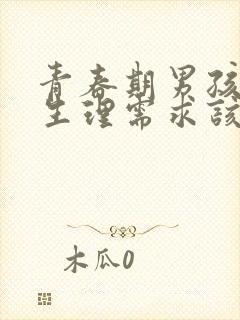 青春期男孩
生理需求该
木瓜0